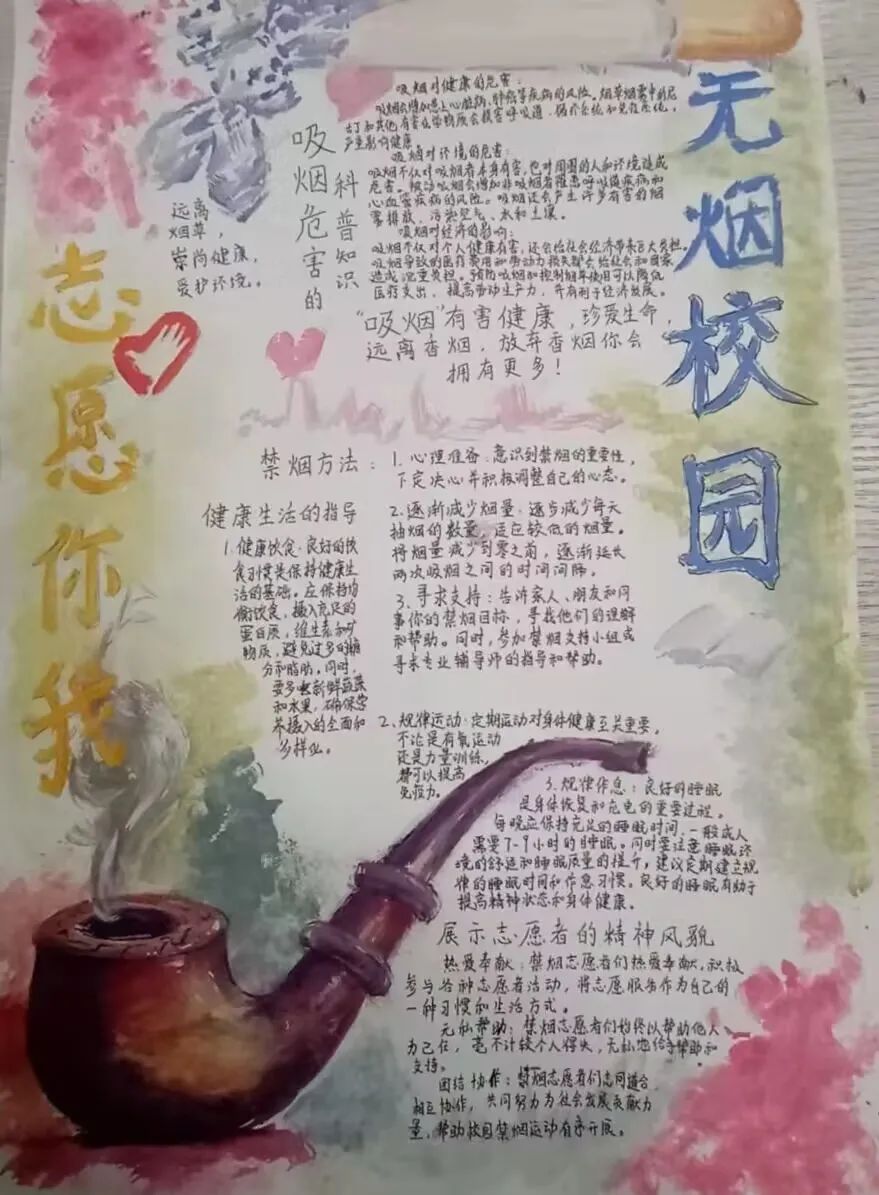 无烟校园
志愿你我
远离
烟草,
崇尚健康,
爱护环境。
吸烟危害的
科普知识
吸烟对健康的危害:
吸烟会增加患上心脏病,肺癌等疾病的风险。烟草烟雾中的尼
古丁和其他有害化学物质会损害呼吸道,循环系统和免疫系统,
严重影响健康。
吸烟对环境的危害:
吸烟不仅对吸烟者本身有害,也对周围的人和环境造成
危害。被动吸烟会增加非吸烟者罹患呼吸道疾病和
心血管疾病的风险。吸烟还会产生许多有害的烟
雾排放,污染空气、水和土壤。
吸烟对经济的影响:
吸烟不仅对个人健康有害,还会给社会经济带来巨大负担。
吸烟导致的医疗费用和劳动力损失都会给社会和国家
造成沉重负担。预防吸烟和控制烟草使用可以降低
医疗支出,提高劳动生产力,并有利于经济发展。
“吸烟”有害健康,珍爱生命,
远离香烟,放弃香烟你会
拥有更多!
禁烟方法:
1.心理准备:意识到禁烟的重要性,
下定决心并积极调整自己的心态。
2.逐渐减少烟量:逐步减少每天
抽烟的数量,适应较低的烟量。
将烟量减少到零之前,逐渐延长
两次吸烟之间的时间间隔。
3、寻求支持:告诉家人、朋友和同
事你的禁烟目标,寻找他们的理解
和帮助。同时,参加禁烟支持小组或
寻求专业辅导师的指导和帮助。
健康生活的指导
1.健康饮食:良好的饮
食习惯是保持健康生
活的基础。应保持均
衡饮食,摄入充足的
蛋白质,维生素和矿
物质,避免过多的糖
分和脂肪。同时,
要多吃新鲜蔬菜
和水果,确保营
养摄入的全面和
多样化。
2、规律运动:定期运动对身体健康至关重要。
不论是有氧运动
还是力量训练,
都可以提高
免疫力。
3.规律作息:良好的睡眠
是身体恢复和充电的重要过程。
每晚应保持充足的睡眠时间,一般成人
需要7-9小时的睡眠。同时要注意睡眠环
境的舒适和睡眠质量的提升,建议定期建立规
律的睡眠时间和作息习惯。良好的睡眠有助于
提高精神状态和身体健康。
展示志愿者的精神风貌
热爱奉献:禁烟志愿者们热爱奉献,积极
参与各种志愿者活动,将志愿服务作为自己的
一种习惯和生活方式。
无私帮助:禁烟志愿者们始终以帮助他人
为己任,毫不计较个人得失,无私地给予帮助和
支持。
团结协作:禁烟志愿者们志同道合,
相互协作,共同努力为社会发展贡献力
量,帮助校园禁烟运动有序开展。